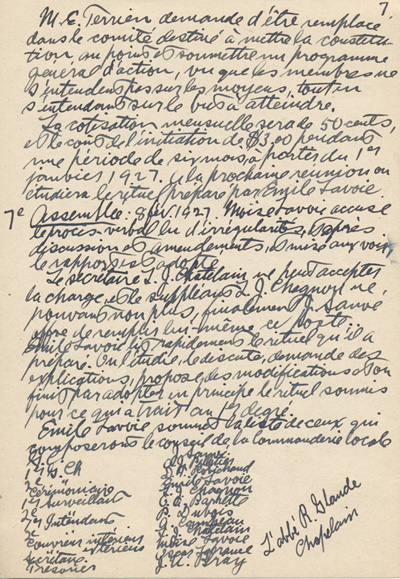 7
M. E. Terrien demande d'être remplacé
dans le comité destiné à mettre la constitu-
tion, au point et soumettre un programme
general d'action, vu que les membres ne
s'entendent pas sur les moyens, tout en
s'entendant sur le but à atteindre.
La cotisation mensuelle sera de 50 cents,
et le coût de l'initiation de $3.00 pendant
une période de six mois à partir du 1er
janvier 1927. A la prochaine reunion on
étudiera le rituel préparé par Emile Savoie
7e Assemblée. 8 fév. 1927. Moise Savoie accuse
le procès-verbal lu d'irrégularités, & après
discussion et amendements, et mise aux voix,
le rapport est adopté.
Le secrétaire L. J. Chatelain, ne peut accepter
la charge, et le suppléant L. J. Chagnon ne
pouvant non plus, finalement J. Sauvé
de remplir lui-même ce poste.
Emile Savoie lit rapidement le rituel qu'il a
préparé. On l'étudie, le discute, demande des
explications, propose des modifications et on
finit par adopter en principe le rituel soumis
pour ce qui a trait au 1er degré.
Emile Savoie soumet la liste de ceux qui
composeront le conseil de la Commanderie locale
J. Sauvé
Ch
Emile Savoie
Cérémoniaire L. J. Chagnon
1er Surveillant
P. Dubois
1er Intendant
Chatelain
Couvreur intérieur Moise Savoie
extérieur
Secrétaire
Trésorier
L'abbé R. Glaude
Chapelain